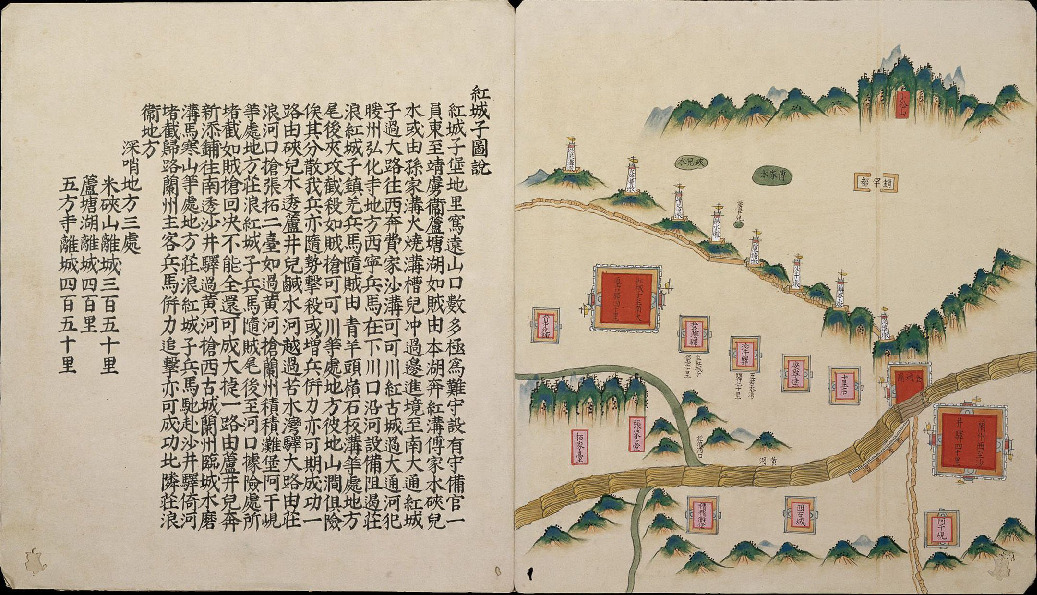 紅城子圖說
紅城子堡地里窵遠山口數多極窵難守設有守備官一
員東至靖虜衞蘆塘湖如賊由本湖奔紅溝傅家水硤兒
水或由孫家溝火燒溝槽兒冲過邊進境至南大通紅城
子過大路往西奔費家沙溝可可川紅古城過大通河犯
暖州弘化寺地方西寧兵馬在下川口沿河設備阻遏莊
浪紅城子鎮羌兵馬隨賊由青羊頭嶺石板溝等處地方
尾後夾攻截殺如賊搶可可川等處地方彼地山澗俱險
俟其分散我兵亦隨勢擊殺或增兵併力亦可期成功一
路由硤兒水透蘆井兒鹹水河越過苦水灣驛大路由莊
浪河口搶張拓二臺如過黃河搶蘭州積積灘堡阿干峴
等處地方莊浪紅城子兵馬隨賊尾後至河口據險處所
堵截如賊搶回决不能全還可成大捷一路由蘆井兒奔
新添鋪往南透沙井驛過黃河搶西古城蘭州臨城水磨
溝馬寒山等處地方莊浪紅城子兵馬馳赴沙井驛倚河
堵截歸路蘭州主客兵馬併力追擊亦可成功北隣莊浪
衞地方
深哨地方三處
米硤山離城三百五十里
蘆塘湖離城四百里
五方寺離城四百五十里
硤兒水
苦水灣驛
十里店
張家臺
拓家臺
黃河
西古城
阿干峴